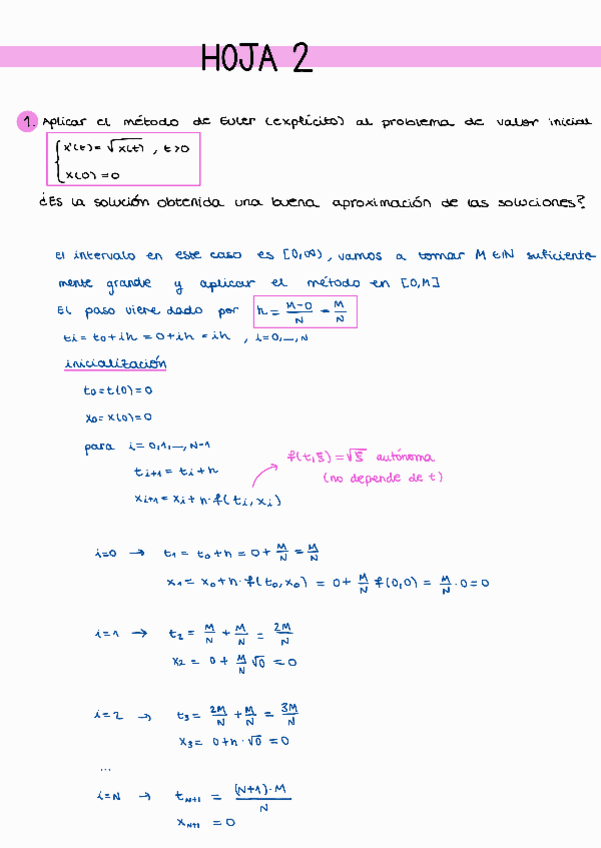 HOJA 2
1. Aplicar el método de Euler (explícito) al problema de valor inicial
{ x'(t) = √x(t) , t>0
x(0) = 0
¿Es la solución obtenida una buena aproximación de las soluciones?
El intervalo en este caso es [0,∞), vamos a tomar M ∈ ℕ suficiente-
mente grande y aplicar el método en [0,M]
El paso viene dado por h = (M-0)/N = M/N
ti = t0 + ih = 0 + ih = ih , i=0,...,N
inicialización
t0 = t(0) = 0
x0 = x(0) = 0
para i = 0,1,...,N-1
f(t,ξ) = √ξ autónoma
ti+1 = ti + h
(no depende de t)
xi+1 = xi + h·f(ti, xi)
i=0 → t1 = t0 + h = 0 + M/N = M/N
x1 = x0 + h·f(t0, x0) = 0 + M/N f(0,0) = M/N · 0 = 0
i=1 → t2 = M/N + M/N = 2M/N
x2 = 0 + M/N √0 = 0
i=2 → t3 = 2M/N + M/N = 3M/N
x3 = 0 + h · √0 = 0
...
i=N → tN+1 = (N+1)·M/N
xN+1 = 0